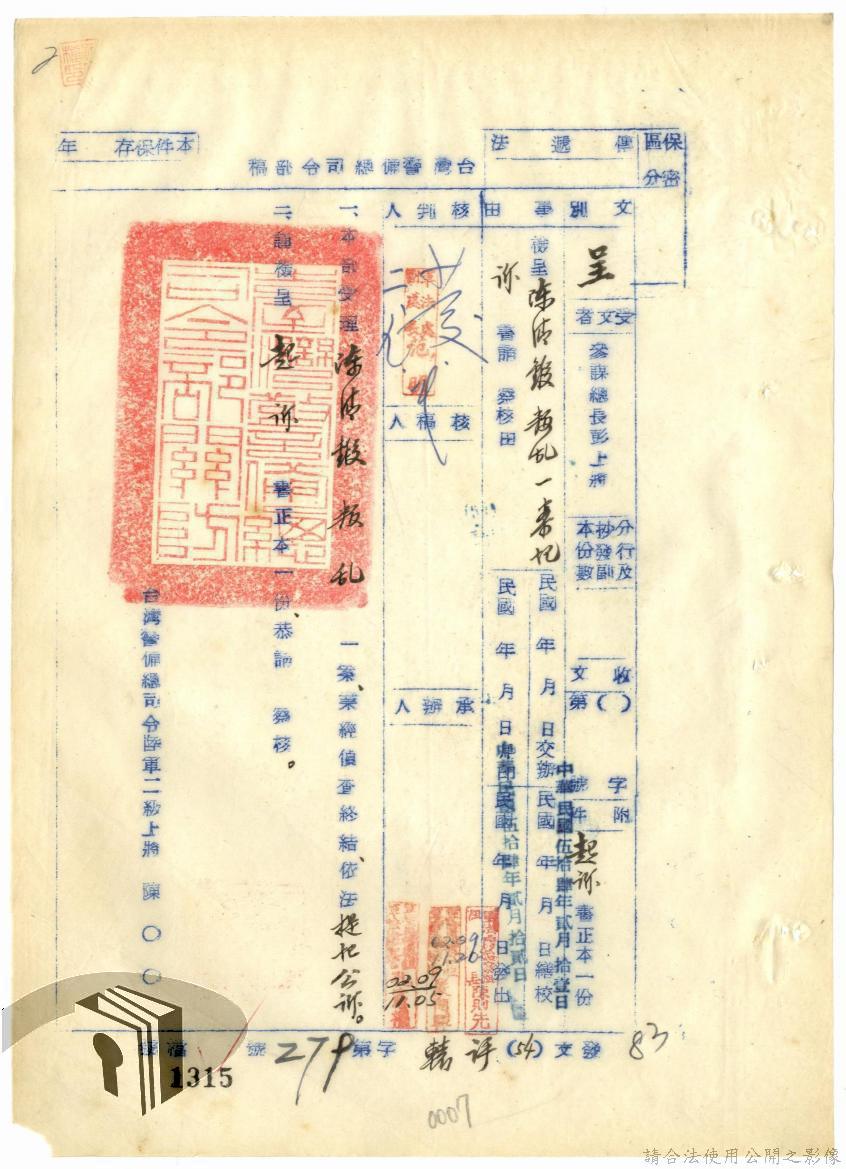 2
保密
區分
傳遞法
台灣警備總司令部稿
本件保存 年
文別
呈
受文者
參謀總長彭上將
分行及
抄發副
本份數
收文
第( )
字號
附件
起訴書正本一份
事由
檢呈陈清鍛叛乱一案起
訴書請 察核由
民國 年 月 日交辦
民國 年 月 日繕校
中華民國伍拾肆年貳月拾壹日
民國 年 月 日
民國 年 月 日發出
伍拾肆年貳月拾貳日
核判人
核稿人
承辦人
長陳則先
02.09
11.26
02.09
11.05
一、本部受理陈清鍛叛乱一案、業經偵查終結、依法提起公訴。
二、謹檢呈起訴書正本一份、恭請 察核。
台灣警備總司令陸軍二級上將陳〇〇
發文(54)
字第279號
檔號
83
1315
0007
請合法使用公開之影像